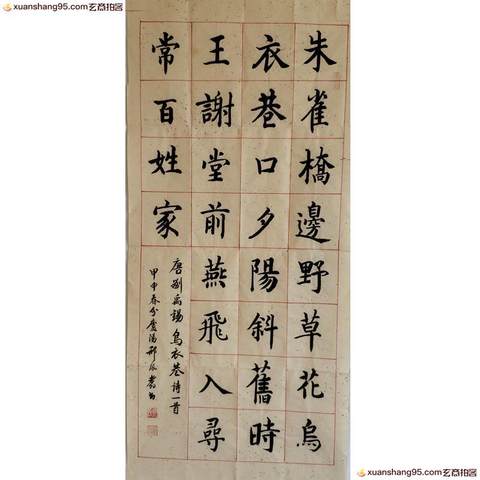 xuanshang95.com玄商拍客
朱雀橋邊野草花烏
衣巷口夕陽斜舊時
王謝堂前燕飛入尋
常百姓家
唐劉禹錫烏衣巷詩一首
甲申春分
xuanshang95.com玄商拍客